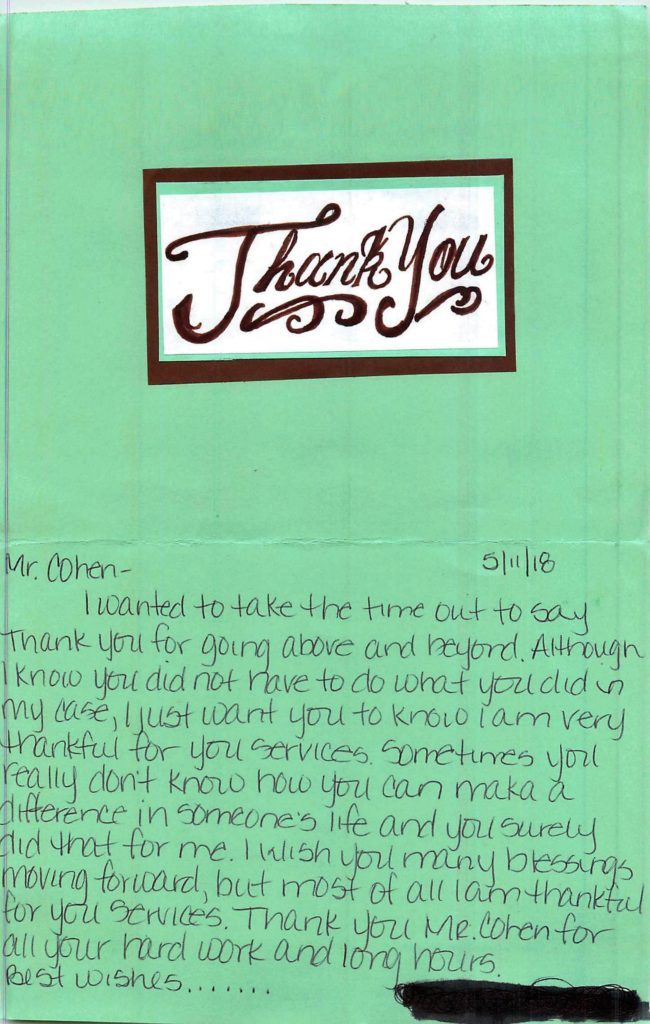 Thank You
Mr. Cohen- 5/11/18
I wanted to take the time out to say
thank you for going above and beyond. Although
I know you did not have to do what you did in
my case, I just want you to know I am very
thankful for you services. Sometimes you
really don't know how you can maka a
difference in someone's life and you surely
did that for me. I wish you many blessings
moving forward, but most of all I am thankful
for you services. Thank you Mr. Cohen for
all your hard work and long hours.
Best wishes.......